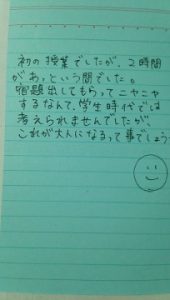 初の授業でしたが、2時間
があっという間でした。
宿題出してもらってニヤニヤ
するなんて、学生時代では
考えられませんでしたが、
これが大人になるって事でしょう